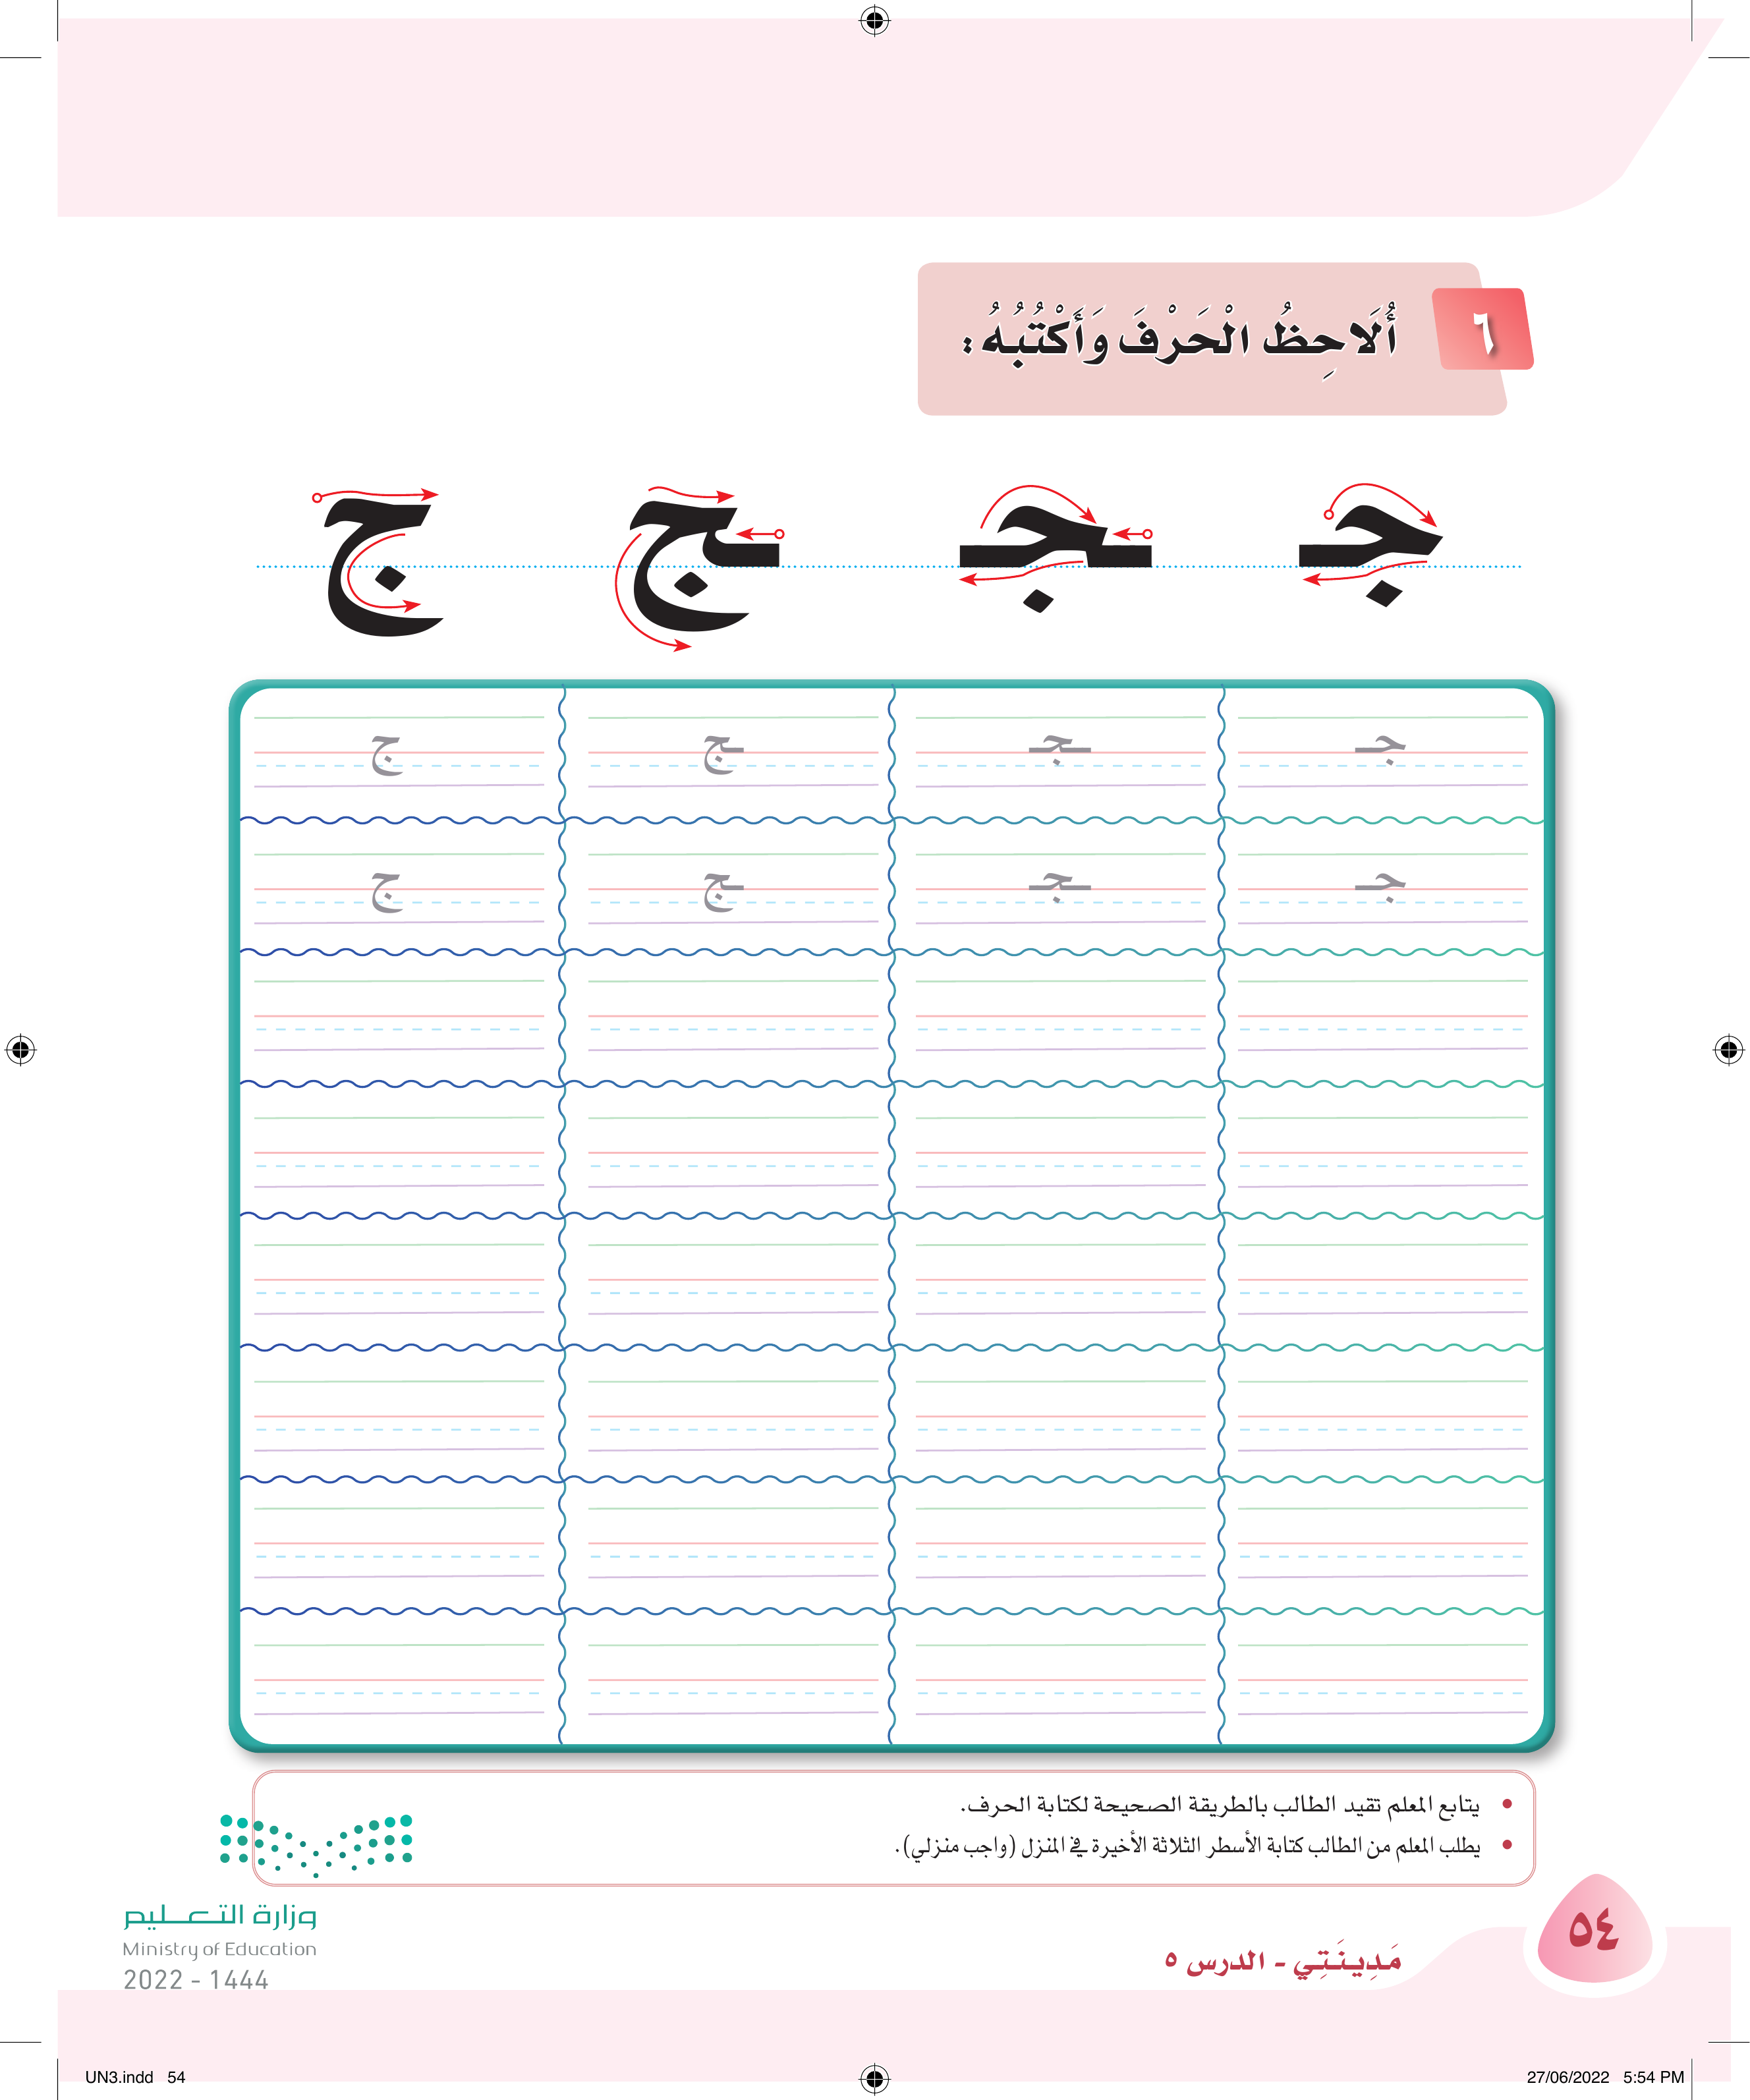 ٦
أُلَاحِظُ الْحَرْفَ وَأَكْتُبُهُ :
جـ ـجـ ـج ج
جـ ـجـ ـج ج
جـ ـجـ ـج ج
يتابع المعلم تقيد الطالب بالطريقة الصحيحة لكتابة الحرف.
يطلب المعلم من الطالب كتابة الأسطر الثلاثة الأخيرة في المنزل (واجب منزلي).
٥٤
مَدِينَتِي - الدرس ٥
وزارة التعليم
Ministry of Education
2022 - 1444
UN3.indd 54
27/06/2022 5:54 PM